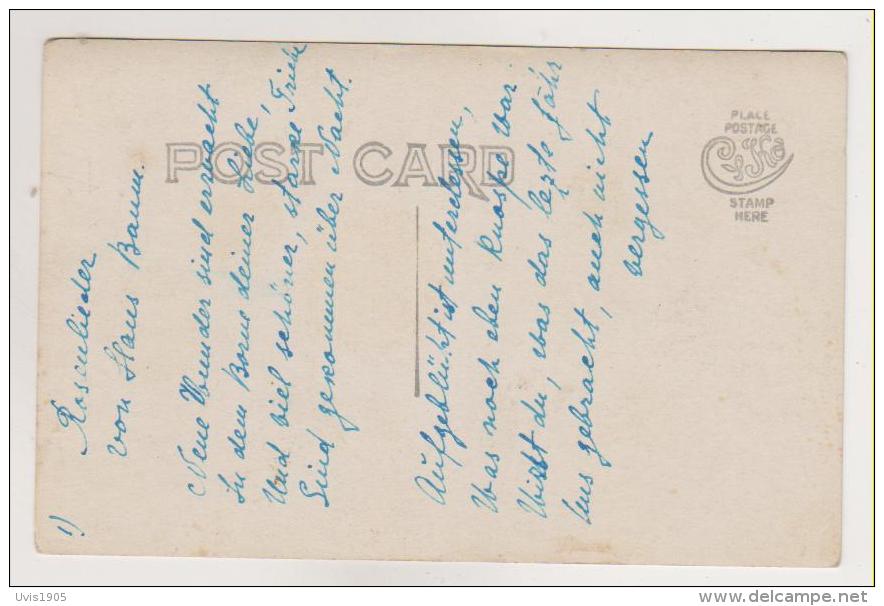 1)
Rosenlieder
von Hans Baum.
Neue Wunder sind erwacht
In dem Borne deiner Liebe,
Und viel schöner, starke Triebe
Sind gekommen über Nacht.
Aufgeblüht ist unterdessen,
Was noch eben Knospe war.
Willst du, was das lezte Jahr
Uns gebracht, auch nicht
vergessen
POST CARD
PLACE
POSTAGE
STAMP
HERE
Uvis1905
www.delcampe.net